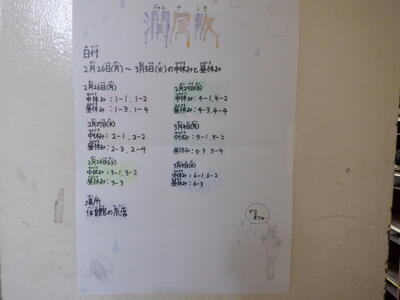 潤屋敷
日付
2月26日(月)～3月5日(火)の中休みと昼休み
2月26日(月)
中休み:1-1,1-2
昼休み:1-3,1-4
2月27日(火)
中休み:2-1,2-2
昼休み:2-3,2-4
2月28日(水)
中休み:3-1,3-2
昼休み:3-3
2月29日(木)
中休み:4-1,4-2
昼休み:4-3,4-4
3月4日(月)
中休み:5-1,5-2
昼休み:5-3,5-4
3月5日(火)
中休み:6-1,6-2
昼休み:6-3
場所
体育館の奈落